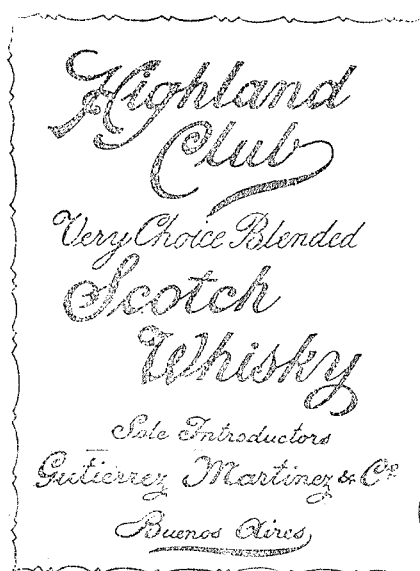 Highland
Club
Very Choice Blended
Scotch
Whisky
Sole Introductors
Gutierrez Martinez & Cª
Buenos Aires